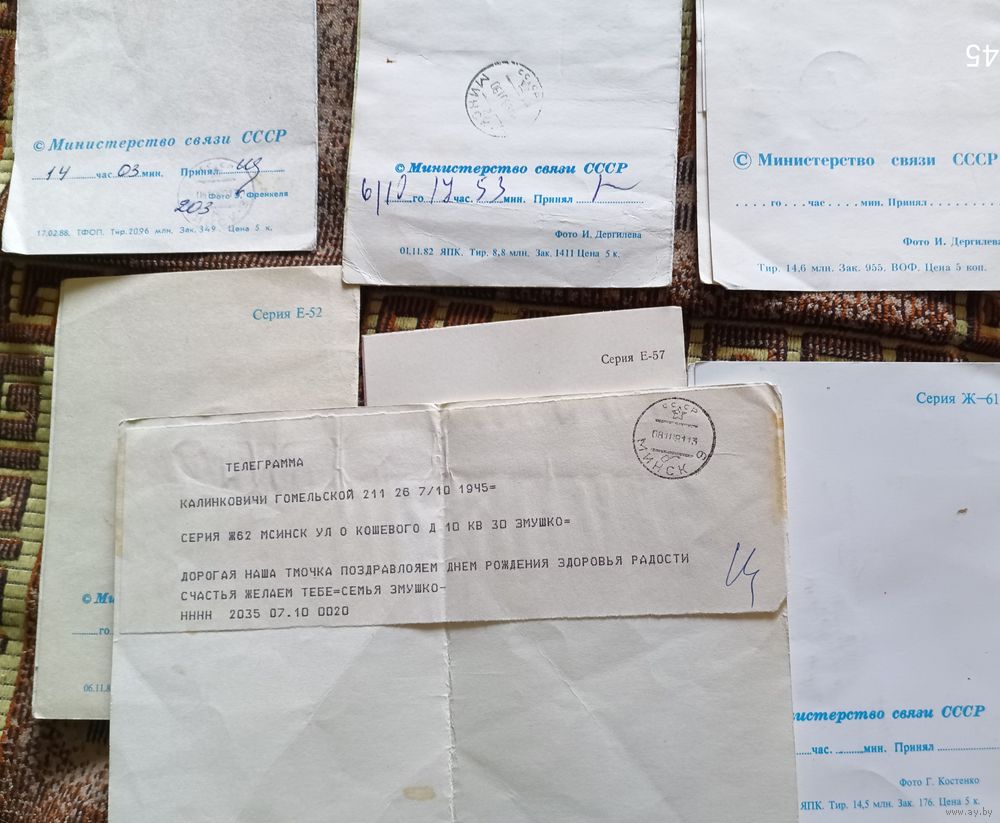 © Министерство связи СССР
14 час. 03 мин. Принял
203
Фото В. Френкеля
17.02.88. ТФОП. Тир. 20,96 млн. Зак. 349. Цена 5 к.
СССР
МИНСК
© Министерство связи СССР
6/10 го 17 час. 53 мин. Принял
Фото И. Дергилева
01.11.82 ЯПК. Тир. 8,8 млн. Зак. 1411 Цена 5 к.
45
© Министерство связи СССР
....го...час....мин. Принял
Фото И. Дергилева
Тир. 14,6 млн. Зак. 955. ВОФ. Цена 5 коп.
Серия Е-52
© Ми
го
06.11.8
Серия Е-57
Серия Ж-61
ТЕЛЕГРАММА
КАЛИНКОВИЧИ ГОМЕЛЬСКОЙ 211 26 7/10 1945=
СЕРИЯ Ж62 МСИНСК УЛ О КОШЕВОГО Д 10 КВ 30 ЗМУШКО=
ДОРОГАЯ НАША ТМОЧКА ПОЗДРАВЛОЯЕМ ДНЕМ РОЖДЕНИЯ ЗДОРОВЬЯ РАДОСТИ
СЧАСТЬЯ ЖЕЛАЕМ ТЕБЕ=СЕМЬЯ ЗМУШКО-
НННН 2035 07.10 0020
СССР
МИНСК
инистерство связи СССР
час. мин. Принял
Фото Г. Костенко
ЯПК. Тир. 14,5 млн. Зак. 176. Цена 5 к.
www.ay.by